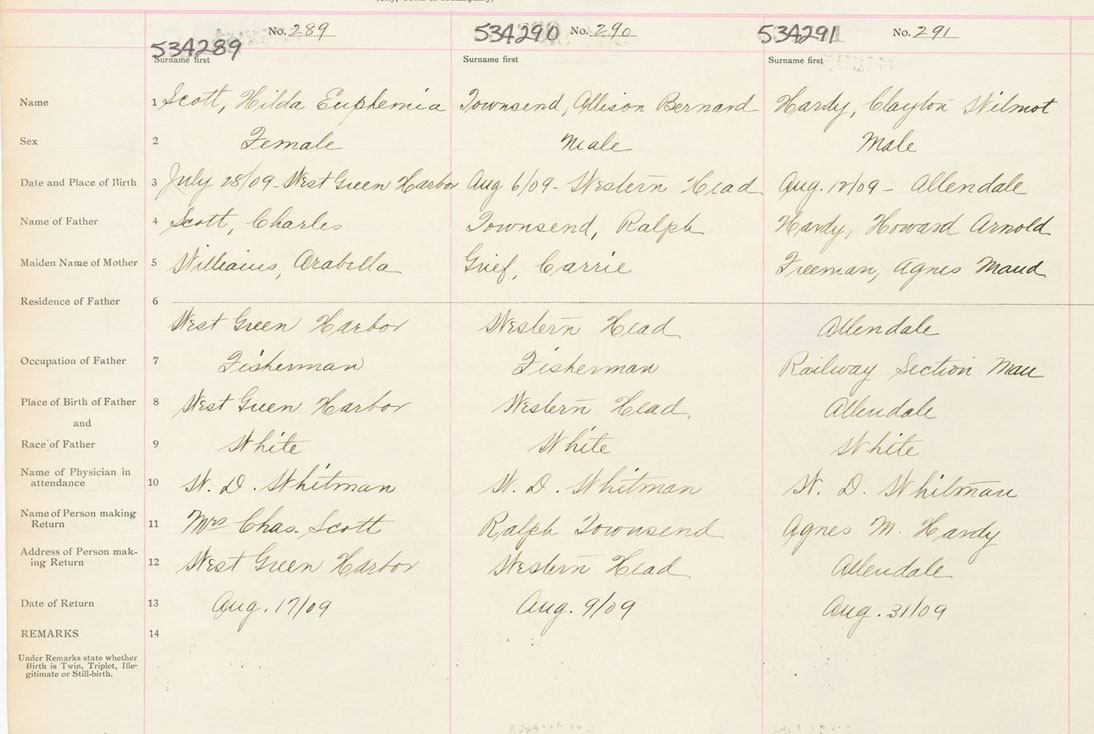 534289 No. 289 534290 No. 290 534291 No. 291
Surname first Surname first Surname first
Name 1 Scott, Hilda Euphemia Townsend, Allison Bernard Hardy, Clayton Wilmot
Sex 2 Female Male Male
Date and Place of Birth 3 July 28/09 - West Green Harbor Aug 6/09 - Western Head Aug. 12/09 - Allendale
Name of Father 4 Scott, Charles Townsend, Ralph Hardy, Howard Arnold
Maiden Name of Mother 5 Williams, Arabella Grief, Carrie Freeman, Agnes Maud
Residence of Father 6
West Green Harbor Western Head Allendale
Occupation of Father 7 Fisherman Fisherman Railway Section Man
Place of Birth of Father 8 West Green Harbor Western Head Allendale
and
Race of Father 9 White White White
Name of Physician in
attendance 10 W. D. Whitman W. D. Whitman W. D. Whitman
Name of Person making
Return 11 Mrs Chas. Scott Ralph Townsend Agnes M. Hardy
Address of Person mak-
ing Return 12 West Green Harbor Western Head Allendale
Date of Return 13 Aug. 17/09 Aug. 9/09 Aug. 31/09
REMARKS 14
Under Remarks state whether
Birth is Twin, Triplet, Ille-
gitimate or Still-birth.